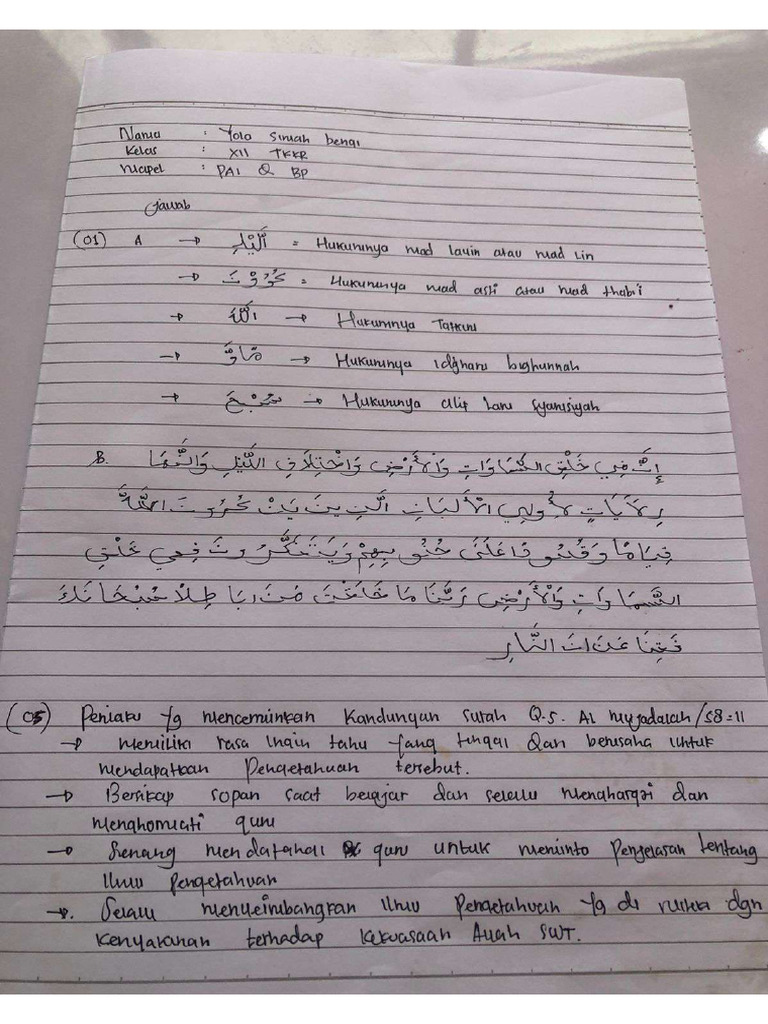 Nama : Yola Simah bengi
Kelas : XII TKKR
Mapel : PAI & BP
Jawab
(01) A → اَلَّيْلِ = Hukumnya mad layin atau mad Lin
→ = Hukumnya mad asli atau mad thabi'i
→ اللَّهَ → Hukumnya Tafkim
→ → Hukumnya idgham bighunnah
→ → Hukumnya alif lam syamsiyah
B. إِنَّ فِي خَلْقِ السَّمَاوَاتِ وَالْأَرْضِ وَاخْتِلَافِ اللَّيْلِ وَالنَّهَا
رِلَآيَاتٍ لِأُولِي الْأَلْبَابِ الَّذِينَ يَذْكُرُونَ اللَّهَ
قِيَامًا وَقُعُودًا عَلَى جُنُوبِهِمْ وَيَتَفَكَّرُونَ فِي خَلْقِ
السَّمَاوَاتِ وَالْأَرْضِ رَبَّنَا مَا خَلَقْتَ هَذَا بَاطِلًا سُبْحَانَكَ
فَقِنَا عَذَابَ النَّارِ
(05) Perilaku yg mencerminkan Kandungan surah Q.S. Al mujadalah/58:11
→ memiliki rasa ingin tahu yang tinggi dan berusaha untuk
mendapatkan Pengetahuan tersebut.
→ Bersikap sopan saat belajar dan selalu menghargai dan
menghormati guru
→ Senang mendatangi guru untuk meminta penjelasan tentang
Ilmu pengetahuan
→. Selalu menyeimbangkan Ilmu Pengetahuan yg di miliki dgn
Kenyakinan terhadap Kekuasaan Allah SWT.